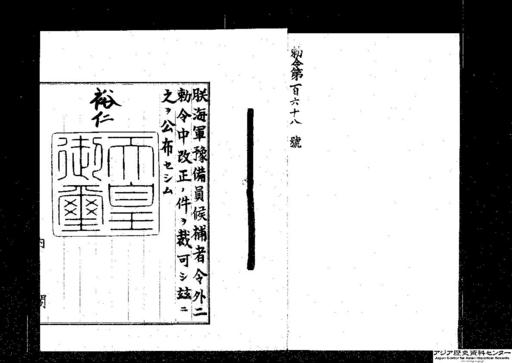 勅令第百六十八號
朕海軍豫備員候補者令外二
勅令中改正ノ件ヲ裁可シ茲ニ
之ヲ公布セシム
裕仁
天皇
御璽
内閣
アジア歴史資料センター
Japan Center for Asian Historical Records